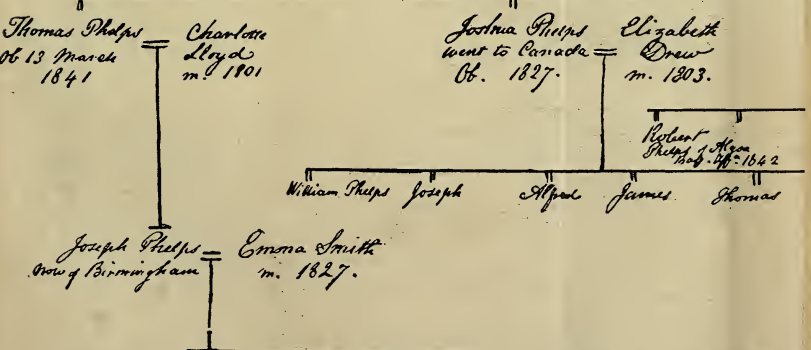 Thomas Phelps
Ob 13 March
1841
Charlotte
Lloyd
m. 1801
Joshua Phelps
went to Canada
Ob. 1827.
Elizabeth
Drew
m. 1803.
Robert
Phelps of
1842
William Phelps
Joseph
Alfred
James
Thomas
Joseph Phelps
now of Birmingham
Emma Smith
m. 1827.